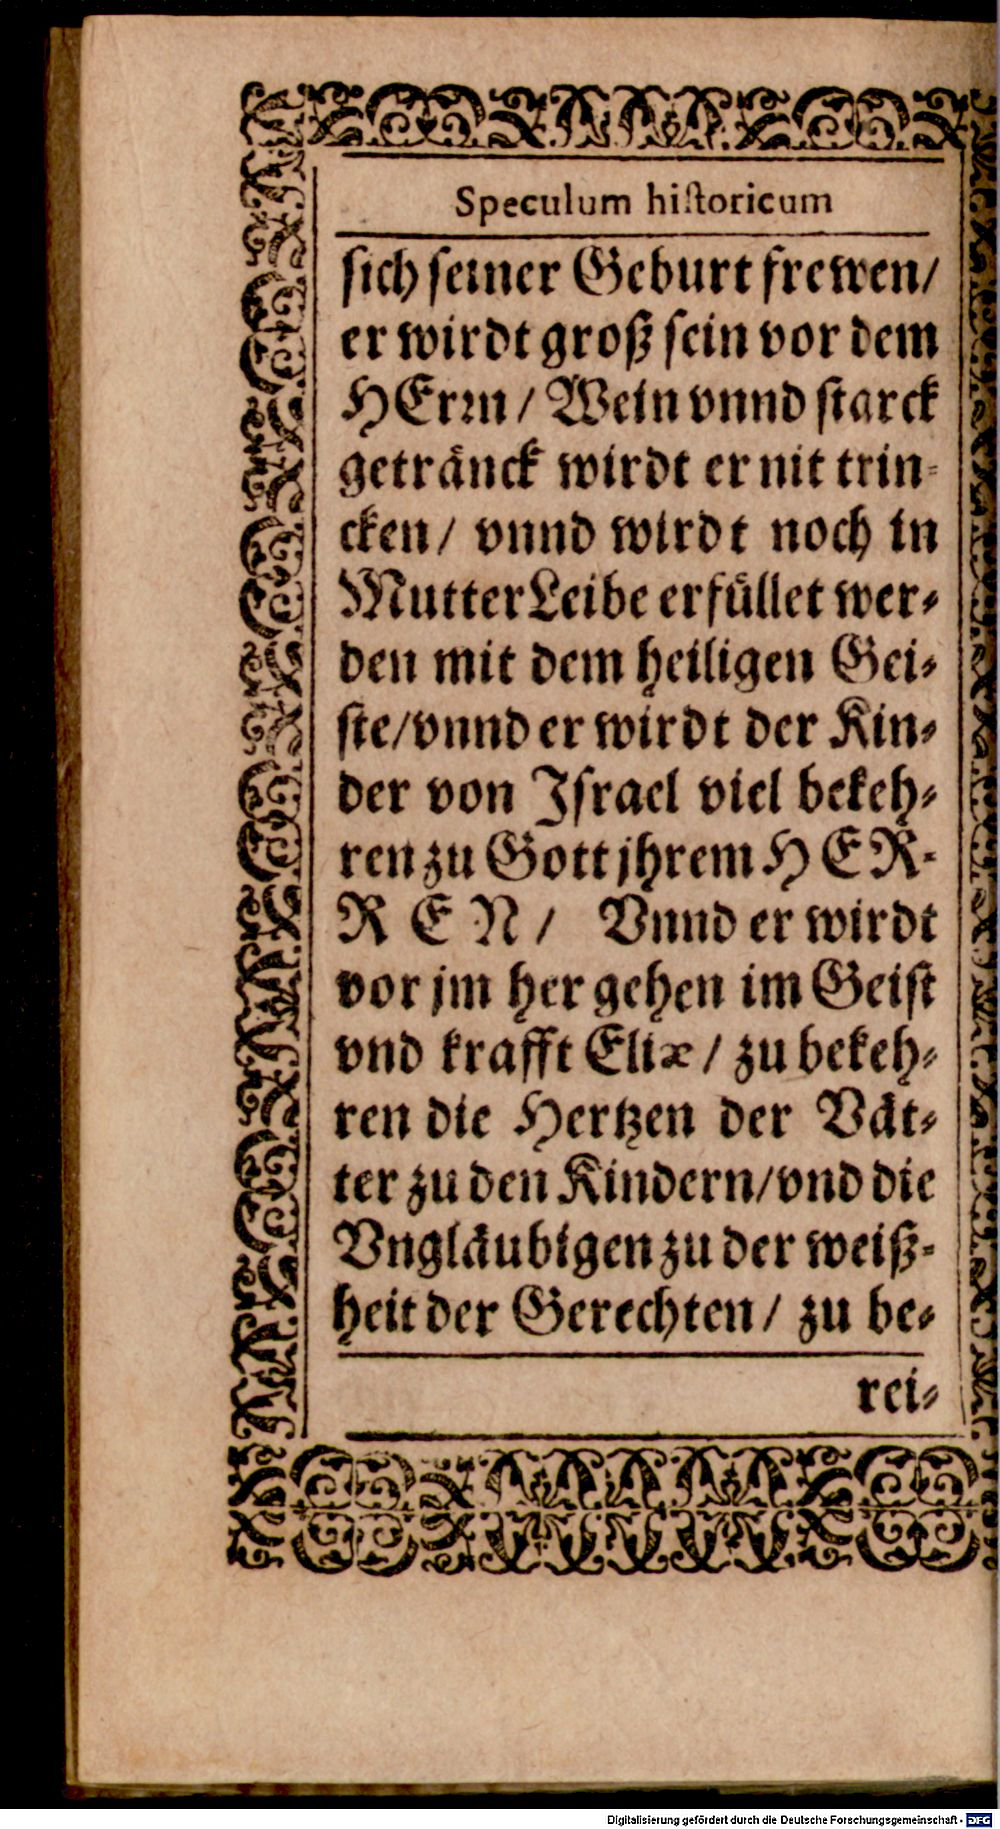 Speculum hiſtoricum
ſich ſeiner Geburt frewen/
er wirdt groß ſein vor dem
HErꝛn / Wein vnnd ſtarck
getränck wirdt er nit trin-
cken/ vnnd wirdt noch in
Mutter Leibe erfüllet wer-
den mit dem heiligen Gei-
ſte/vnnd er wirdt der Kin-
der von Iſrael viel bekeh-
ren zu Gott jhrem HER-
REN/ Vnnd er wirdt
vor jm her gehen im Geiſt
vnd krafft Eliæ / zu bekeh-
ren die Hertzen der Vät-
ter zu den Kindern/vnd die
Vngläubigen zu der weiß-
heit der Gerechten/ zu be-
rei-
Digitalisierung gefördert durch die Deutsche Forschungsgemeinschaft - DFG